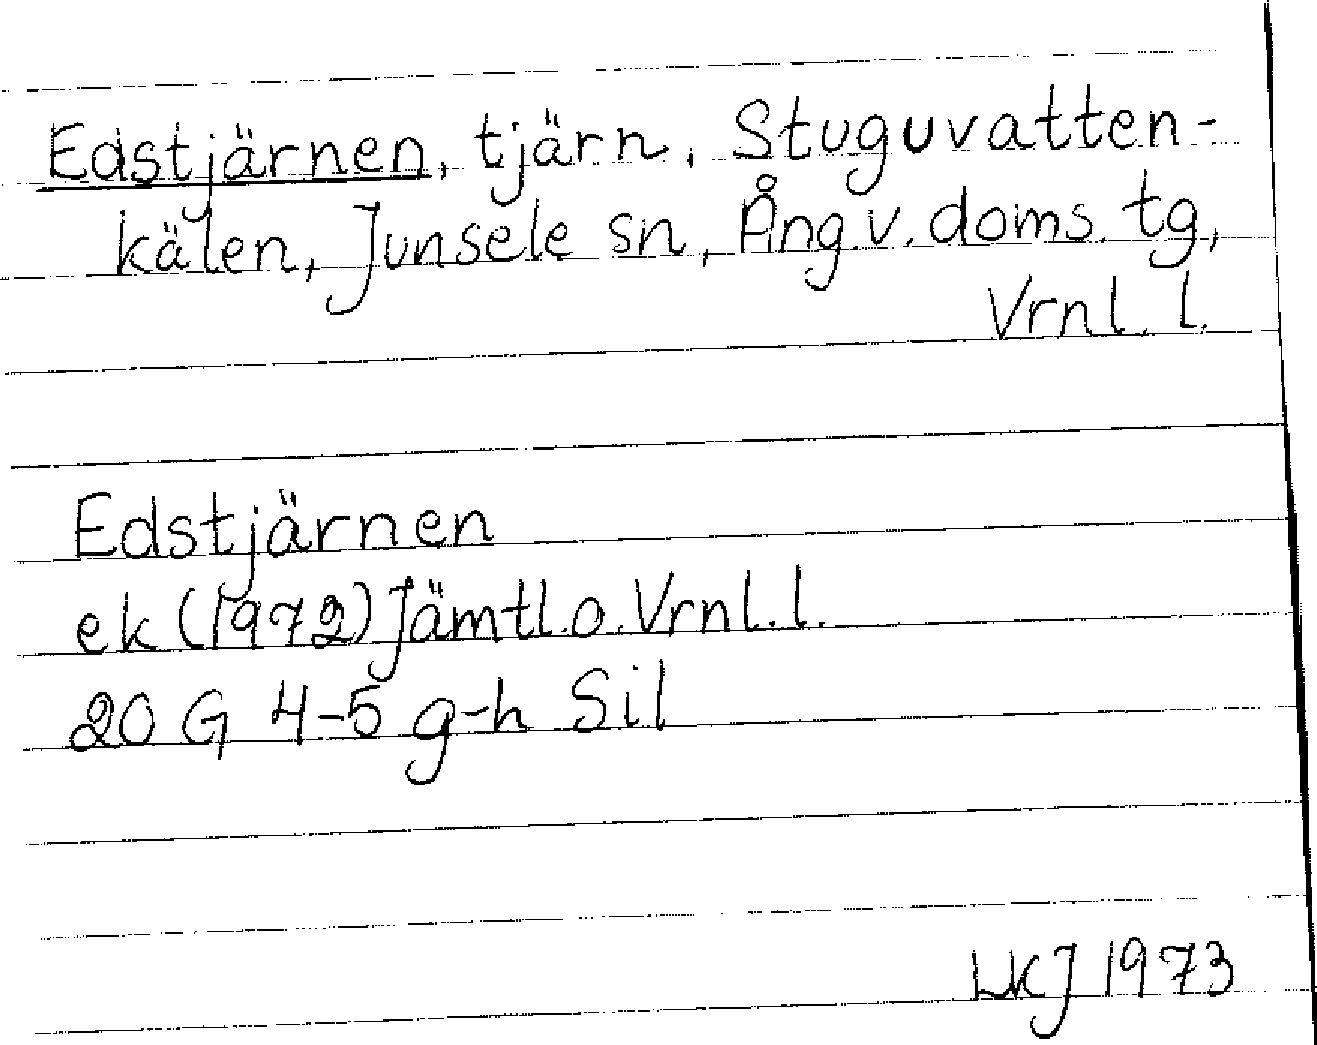 Edstjärnen, tjärn, Stuguvatten-
kälen, Junsele sn, Ång.v. doms. tg,
Vrnl. l.
Edstjärnen
ek (1972) Jämtl. o. Vrnl. l.
20 G 4-5 g-h Sil
LKJ 1973